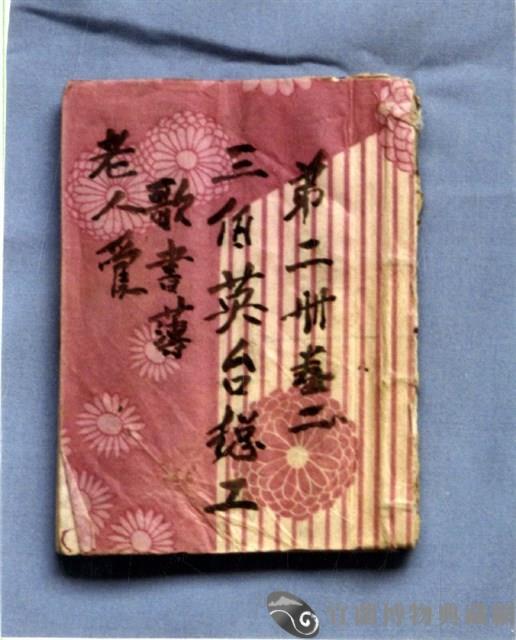 第二冊藝二
三伯英台總工
歌書薄
老人愛
宜蘭博物典藏網